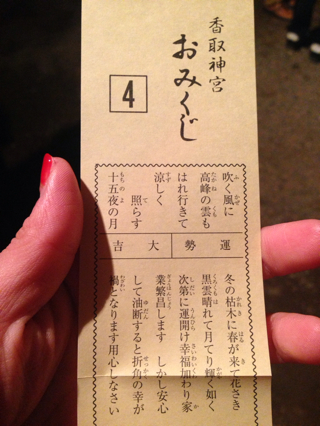 香取神宮
おみくじ
4
吹く風に
高峰の雲も
はれ行きて
涼しく
照らす
十五夜の月
運勢
大吉
冬の枯木に春が来て花さき
黒雲晴れて月てり輝く如く
次第に運開け幸福加わり家
業繁昌します しかし安心
して油断すると折角の幸が
禍となります用心しなさい